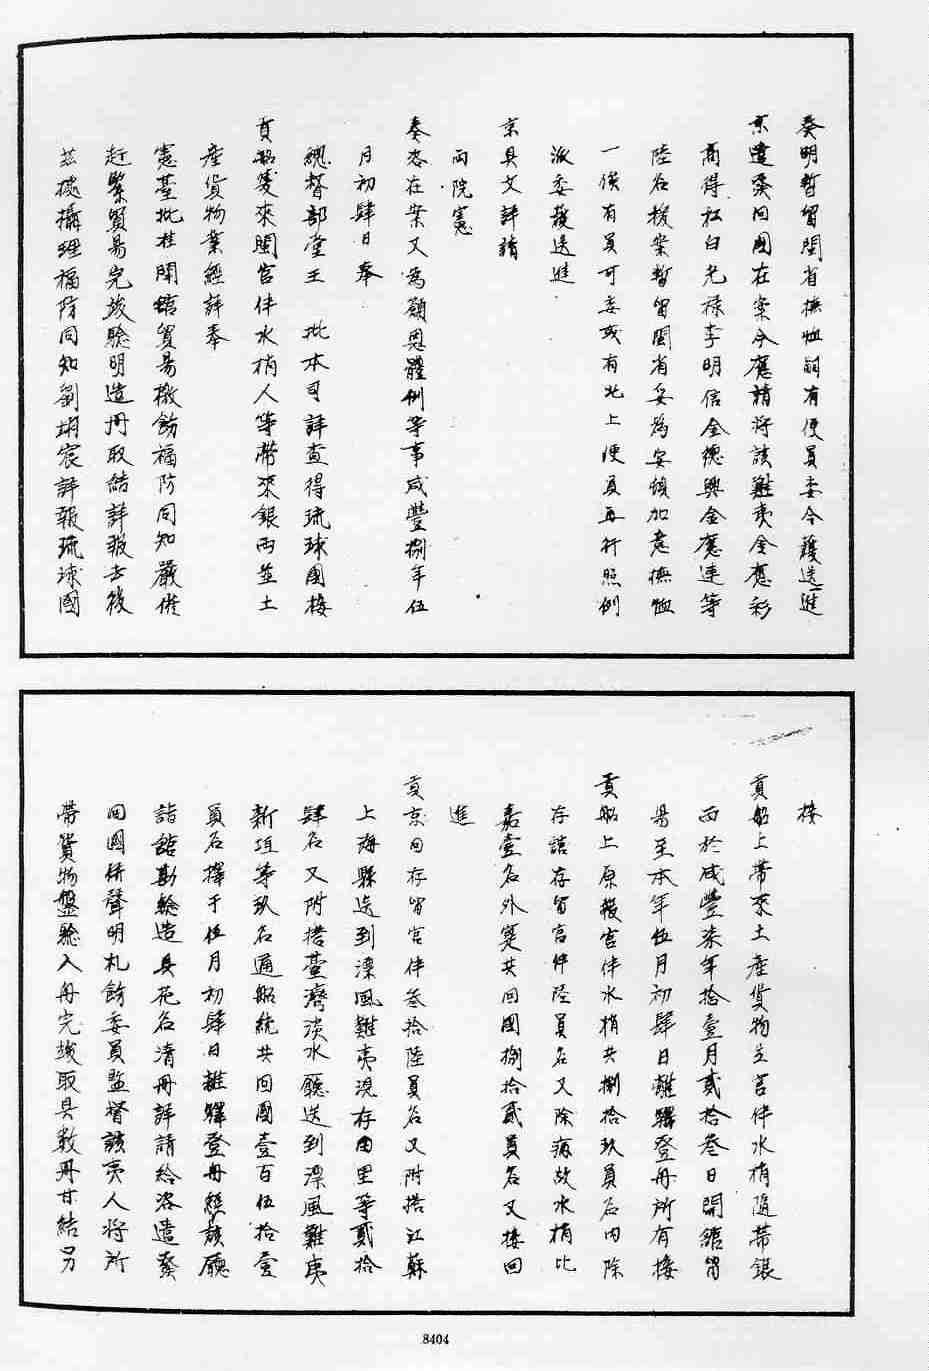 奏明暫留閩省撫恤嗣有便員委令護送進
京遣發回國在案今應請將該難夷金應彩
商得社白允祿李明信金德興金應連等
陸名援案暫留閩省妥為安頓加意撫恤
一俟有員可委或有北上便員再行照例
派委護送進
京具文詳請
兩院憲
奏咨在案又為顧恩體例等事咸豐捌年伍
月初肆日奉
總督部堂王 批本司詳查得琉球國接
貢船隻來閩官伴水梢人等帶來銀兩並土
產貨物業經詳奉
憲臺批准開館貿易檄飭福防同知嚴催
趕緊貿易完竣驗明造冊取結詳報去後
茲據攝理福防同知劉翊宸詳報琉球國
接
貢船上帶來土產貨物並官伴水梢隨帶銀
兩於咸豐柒年拾壹月貳拾叁日開館貿
易至本年伍月初肆日離驛登舟所有接
貢船上原報官伴水梢共捌拾玖員名內除
存館存留官伴陸員名又除病故水梢比
嘉壹名外寔共回國捌拾貳員名又接回
進
貢京回存留官伴叁拾陸員名又附搭江蘇
上海縣送到漂風難夷現存田里等貳拾
肆名又附搭臺灣淡水廳送到漂風難夷
新垣等玖名通船統共回國壹百伍拾壹
員名擇于伍月初肆日離驛登舟經該廳
詣館勘驗造具花名清冊詳請給咨遣發
回國併聲明札飭委員監督該夷人將所
帶貨物盤驗入舟完竣取具數冊甘結另
8404